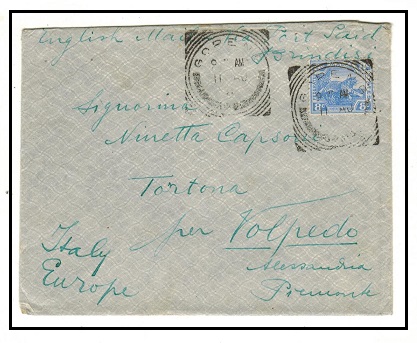 English Mail Via Port Said
Brindisi
GOPENG
AM
11
Signorina
Ninetta Capsoni
Tortona
per Volpedo
Italy
Alessandria
Europe
Piemonte